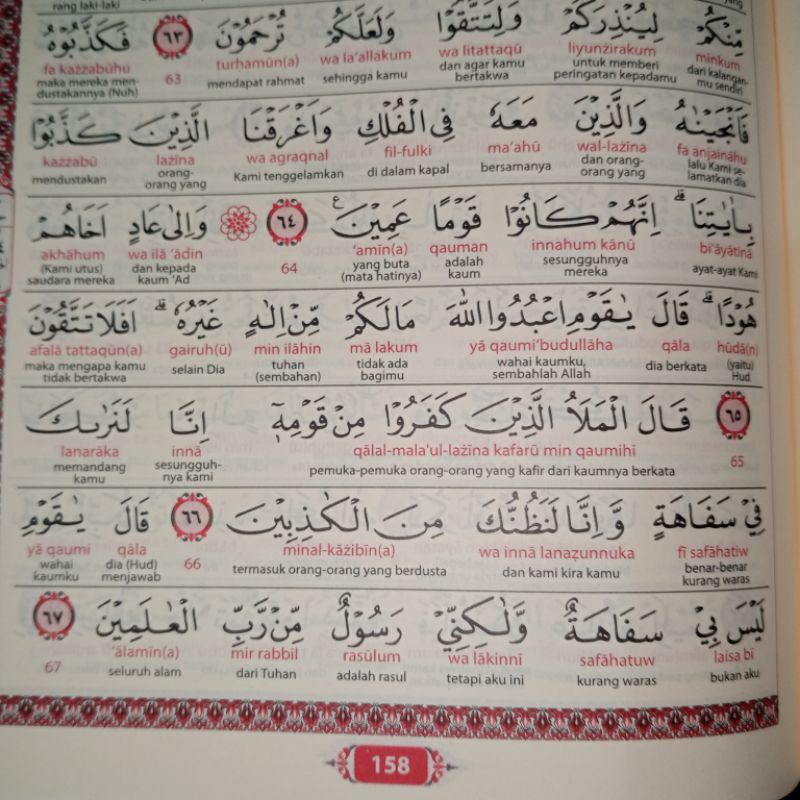 rang laki-laki
مِّنْكُمْ لِيُنْذِرَكُمْ وَلِتَتَّقُوْا وَلَعَلَّكُمْ تُرْحَمُوْنَ ٦٣ فَكَذَّبُوْهُ
minkum liyunżirakum wa litattaqū wa la'allakum turhamūn(a) 63 fa każżabūhu
dari kalangan- mu sendiri untuk memberi peringatan kepadamu dan agar kamu bertakwa sehingga kamu mendapat rahmat maka mereka men- dustakannya (Nuh)
فَاَنْجَيْنٰهُ وَالَّذِيْنَ مَعَهٗ فِى الْفُلْكِ وَاَغْرَقْنَا الَّذِيْنَ كَذَّبُوْا
fa anjaināhu wal-lażīna ma'ahū fil-fulki wa agraqnal lażīna każżabū
lalu Kami se- lamatkan dia dan orang- orang yang bersamanya di dalam kapal Kami tenggelamkan orang- orang yang mendustakan
بِاٰيٰتِنَاۗ اِنَّهُمْ كَانُوْا قَوْمًا عَمِيْنَ ࣖ ٦٤ وَاِلٰى عَادٍ اَخَاهُمْ
bi'āyātinā innahum kānū qauman 'amīn(a) 64 wa ilā 'ādin akhāhum
ayat-ayat Kami sesungguhnya mereka adalah kaum yang buta (mata hatinya) dan kepada kaum 'Ad (Kami utus) saudara mereka
هُوْدًاۗ قَالَ يٰقَوْمِ اعْبُدُوا اللّٰهَ مَا لَكُمْ مِّنْ اِلٰهٍ غَيْرُهٗۗ اَفَلَا تَتَّقُوْنَ
hūdā(n) qāla yā qaumi'budullāha mā lakum min ilāhin gairuh(ū) afalā tattaqūn(a)
(yaitu) Hud dia berkata wahai kaumku, sembahlah Allah tidak ada bagimu tuhan (sembahan) selain Dia maka mengapa kamu tidak bertakwa
٦٥ قَالَ الْمَلَاُ الَّذِيْنَ كَفَرُوْا مِنْ قَوْمِهٖٓ اِنَّا لَنَرٰىكَ
65 qālal-mala'ul-lażīna kafarū min qaumihī innā lanarāka
pemuka-pemuka orang-orang yang kafir dari kaumnya berkata sesunggguh- nya kami memandang kamu
فِيْ سَفَاهَةٍ وَّاِنَّا لَنَظُنُّكَ مِنَ الْكٰذِبِيْنَ ٦٦ قَالَ يٰقَوْمِ
fī safāhatiw wa innā lanaẓunnuka minal-kāżibīn(a) 66 qāla yā qaumi
benar-benar kurang waras dan kami kira kamu termasuk orang-orang yang berdusta dia (Hud) menjawab wahai kaumku
لَيْسَ بِيْ سَفَاهَةٌ وَّلٰكِنِّيْ رَسُوْلٌ مِّنْ رَّبِّ الْعٰلَمِيْنَ ٦٧
laisa bī safāhatuw wa lākinnī rasūlum mir rabbil 'ālamīn(a) 67
bukan aku kurang waras tetapi aku ini adalah rasul dari Tuhan seluruh alam
158